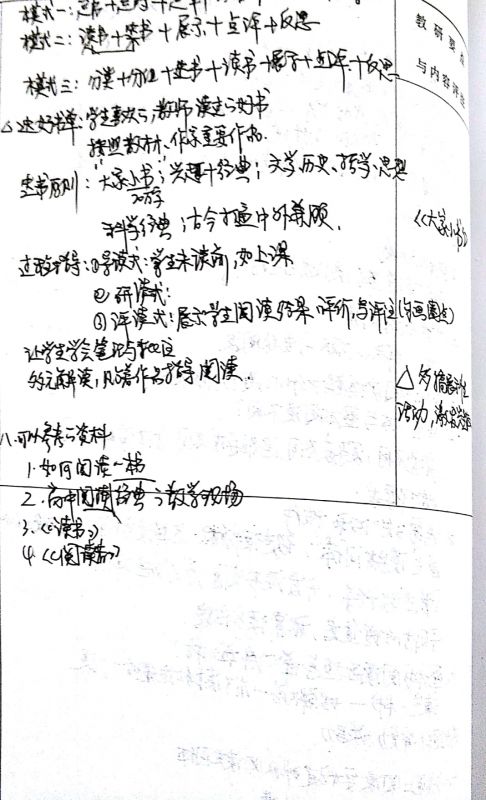 模式二：读书+荐书+展示+点评+反思
模式三：分类+分组+选书+读书+展示+点评+反思
△选好书单：学生喜欢的，教师读过的好书
按照教材、作家重要作品
选书原则：“大家小书”；兴趣+经典；文学历史、哲学、思想
科学经典；古今打通中外兼顾．
过程指导：①导读式：学生未读前，如上课
② 研读式：
③ 评读式：展示学生阅读结果，评价，与评注（勾画圈点）
让学生学会笔记与批注
多元解读，以著作名指导阅读
八．可以参考的资料
1．如何阅读一本书
2．高中阅读经典的教学现场
3．《读书》
4．《阅读者》
教研要点
与内容评注
《大家小书》
△多搞趣味性
活动，激发兴趣